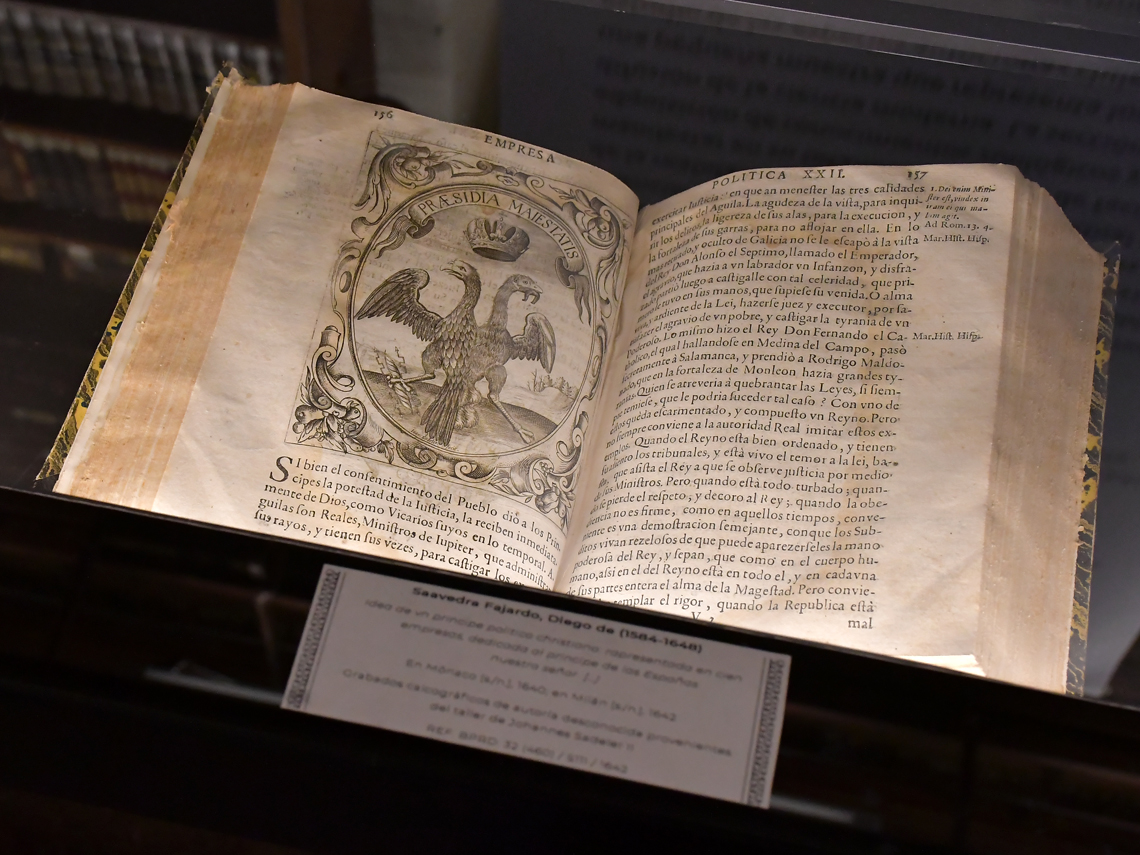 156
EMPRESA
PRÆSIDIA MAIESTATIS
SI bien el consentimiento del Pueblo diò a los Prin-
cipes la potestad de la Iusticia, la reciben inmediata-
mente de Dios, como Vicarios suyos en lo temporal. A-
guilas son Reales, Ministros de Iupiter, que administran
sus rayos, y tienen sus vezes, para castigar los
POLITICA XXII. 157
exercitar Iusticia: en que an menester las tres calidades
principales del Aguila. La agudeza de la vista, para inqui-
rir los delitos, la ligereza de sus alas, para la execucion, y
la fortaleza de sus garras, para no aflojar en ella. En lo
mas retirado, y oculto de Galicia no se le escapò à la vista
del Rey Don Alonso el Septimo, llamado el Emperador,
el agravio, que hazia a vn labrador vn Infanzon, y disfra-
zado partiò luego a castigalle con tal celeridad, que pri-
mero le tuvo en sus manos, que supiese su venida. O alma
viva, y ardiente de la Lei, hazerse juez y executor, por sa-
tisfazer el agravio de vn pobre, y castigar la tyrania de vn
Poderoso. Lo mismo hizo el Rey Don Fernando el Ca-
tholico, el qual hallandose en Medina del Campo, pasò
secretamente à Salamanca, y prendiò a Rodrigo Maldo-
nado, que en la fortaleza de Monleon hazia grandes ty-
ranias. Quien se atreveria à quebrantar las Leyes, si siem-
pre temiese, que le podria suceder tal caso? Con vno de
estos queda escarmentado, y compuesto vn Reyno. Pero
no siempre conviene a la autoridad Real imitar estos ex-
emplos. Quando el Reyno esta bien ordenado, y tienen
su asiento los tribunales, y està vivo el temor a la lei, ba-
sta, que asista el Rey a que se observe justicia por medio
de sus Ministros. Pero quando està todo turbado; quan-
do se pierde el respeto, y decoro al Rey; quando la obe-
diencia no es firme, como en aquellos tiempos, conve-
niente es vna demostracion semejante, conque los Sub-
ditos vivan rezelosos de que puede aparezerseles la mano
poderosa del Rey, y sepan, que como en el cuerpo hu-
mano, assi en el del Reyno està en todo el, y en cadavna
de sus partes entera el alma de la Magestad. Pero convie-
templar el rigor, quando la Republica està
mal
1. Dei enim Mini-
ster est, vindex in
iram ei qui ma-
lum agit.
Ad Rom. 13. 4.
Mar. Hist. Hisp.
Mar. Hist. Hisp.
Saavedra Fajardo, Diego de (1584-1648)
Idea de un príncipe político christiano: representada en cien
empresas, dedicada al príncipe de las Españas
nuestro señor [...]
En Mónaco [s.n.], 1640, en Milán [s.n.], 1642
Grabados calcográficos de autoría desconocida provenientes
del taller de Johannes Sadeler II